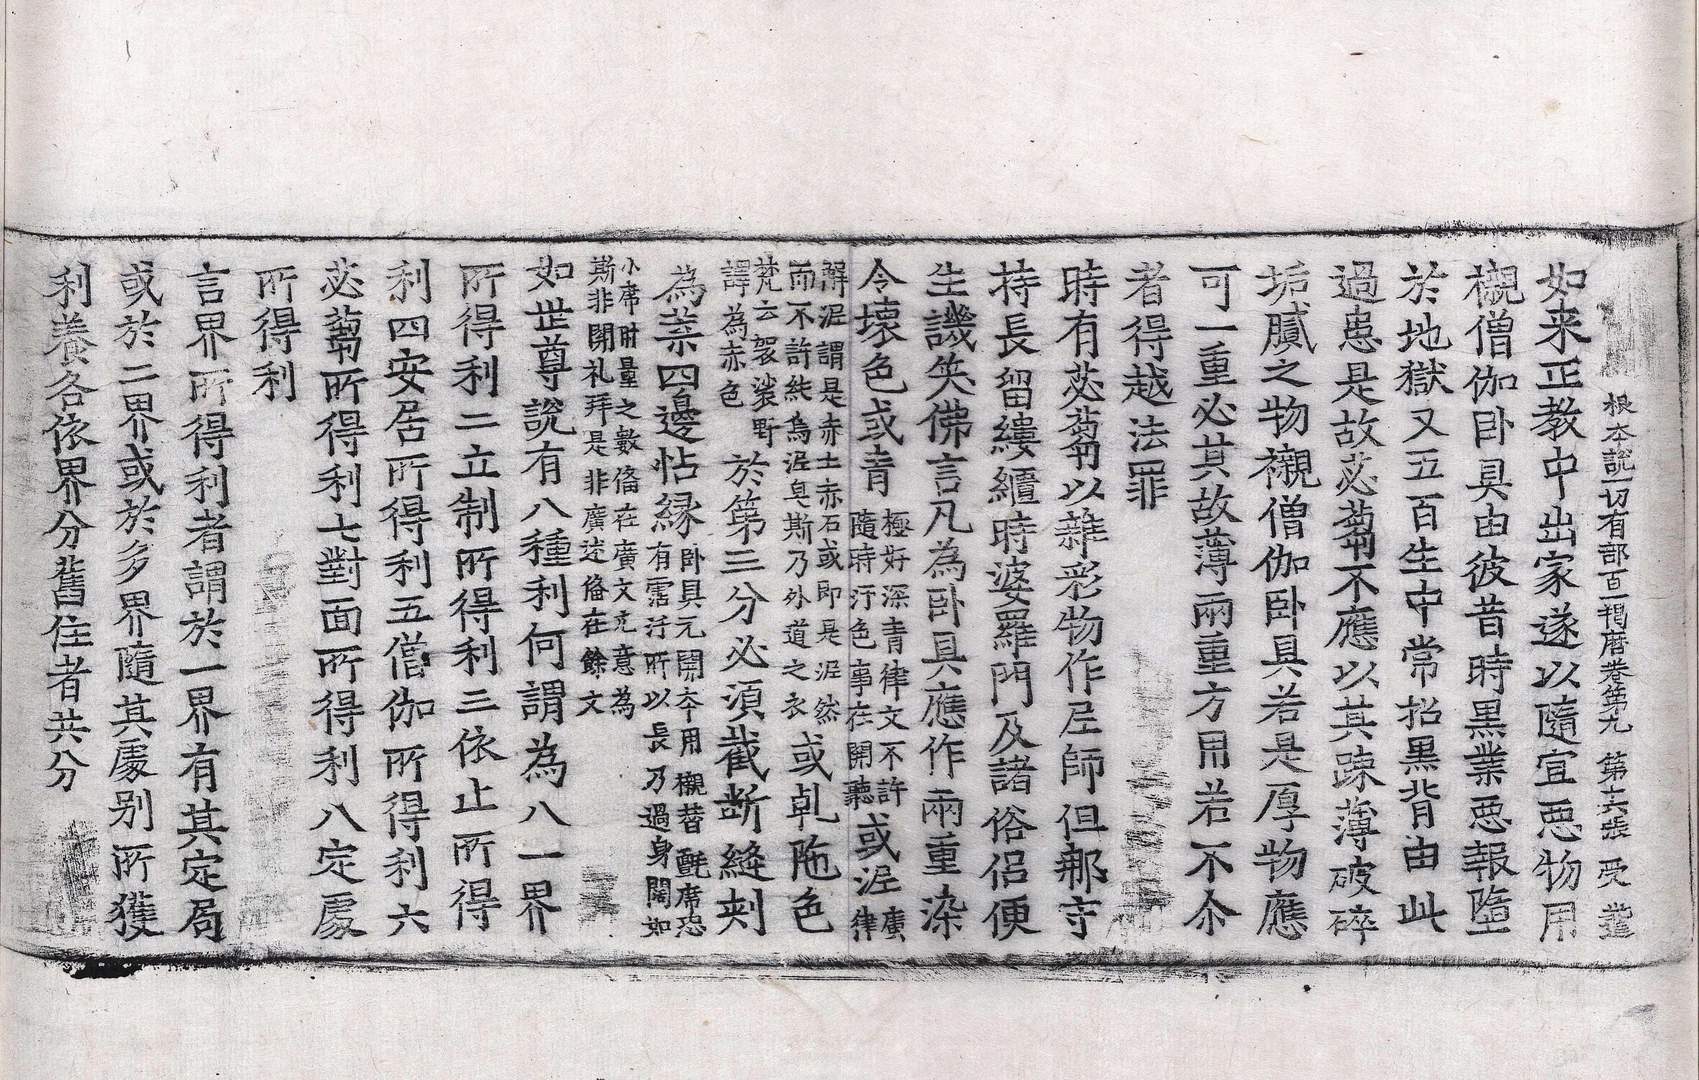 根本說一切有部百一羯磨卷第九　第十六張　受
如来正教中出家遂以隨宜惡物用
襯僧伽卧具由彼昔時黒業惡報墮
於地獄又五百生中常招黒背由此
過患是故苾蒭不應以其踈薄破碎
垢膩之物襯僧伽卧具若是厚物應
可一重必其故薄兩重方用若不尒
者得越法罪
時有苾蒭以雜彩物作尼師但那守
持長留縷繾時婆羅門及諸俗侣便
生譏笑佛言凡為卧具應作兩重染
令壞色或青極好深青律文不許隨時汙色事在開聽或泥廣律
解泥謂是赤土赤石或即是泥然而不許純烏泥皂斯乃外道之衣或乹陁色
梵云袈裟野譯為赤色於第三分必須截断縫刺
為葉四邊怗縁卧具元開本用襯替氈席恐有霑汙所以長乃過身闊如
小席財量之數俻在廣文元意為斯非開礼拜是非廣述俻在餘文
如世尊說有八種利何謂為八一界
所得利二立制所得利三依止所得
利四安居所得利五僧伽所得利六
苾蒭所得利七對面所得利八定處
所得利
言界所得利者謂於一界有其定局
或於二界或於多界隨其處别所獲
利養各依界分舊住者共分